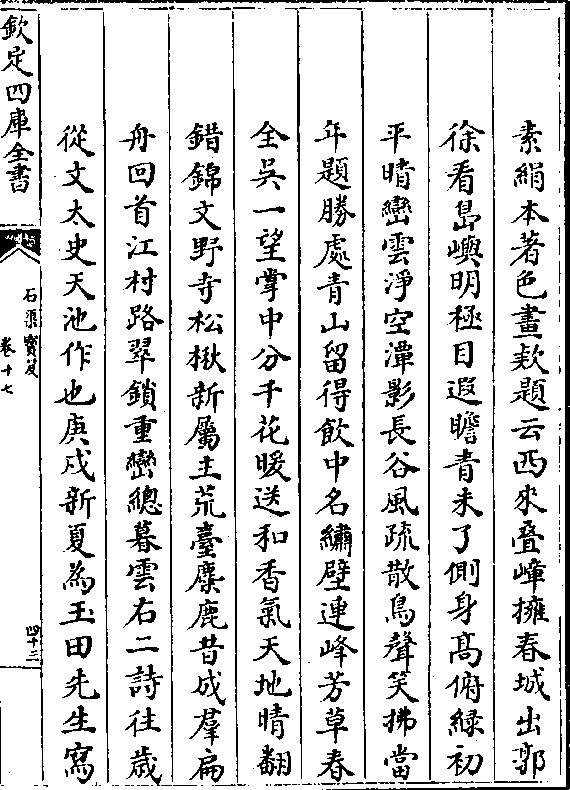 素絹本著色畫款題云西來疊嶂擁春城出郭
徐看島嶼明極目遐瞻青未了側身高俯綠初
平晴巒雲淨空潭影長谷風疏散鳥聲笑拂當
年題勝處青山留得飲中名繡壁連峰芳草春
全吳一望掌中分千花暖送和香氣天地晴翻
錯錦文野寺松楸新屬主荒臺麋鹿昔成羣扁
舟回首江村路翠鎖重巒總暮雲右二詩往歲
從文太史天池作也庚戌新夏為玉田先生寫
欽定四庫全書
石渠寶笈
卷十七
四十三